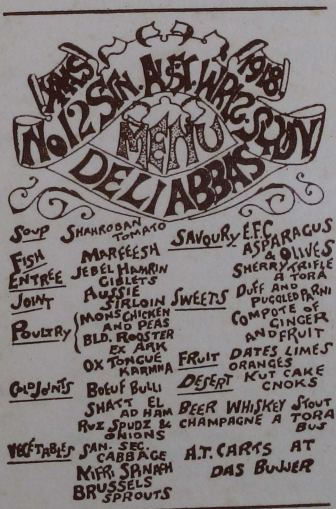 XMAS 1918
No 12 STN. AUST. WRLS SQDN
MENU
DELI ABBAS
SOUP SHAHROBAN TOMATO
FISH MARFEESH
ENTRÉE JEBEL HAMRIN GIBLETS
JOINT AUSSIE SIRLOIN
POULTRY MONS CHICKEN AND PEAS
BLD. ROOSTER EX ARK
OX TONGUE KARHMA
COLD JOINTS BOEUF BULLI
SHATT EL AD HAM
RUZ SPUDZ & ONIONS
VEGETABLES SAN. SEC. CABBAGE
KIFRI SPINACH
BRUSSELS SPROUTS
SAVOURY E.F.C. ASPARAGUS & OLIVES
SWEETS SHERRY TRIFLE A TORA
DUFF AND PUGGLED PARNI
COMPOTE OF GINGER AND FRUIT
FRUIT DATES LIMES ORANGES
DESERT KUT CAKE CNOKS
BEER WHISKEY STOUT
CHAMPAGNE A TORA BUS
A.T. CARTS AT
DAS BUJJER